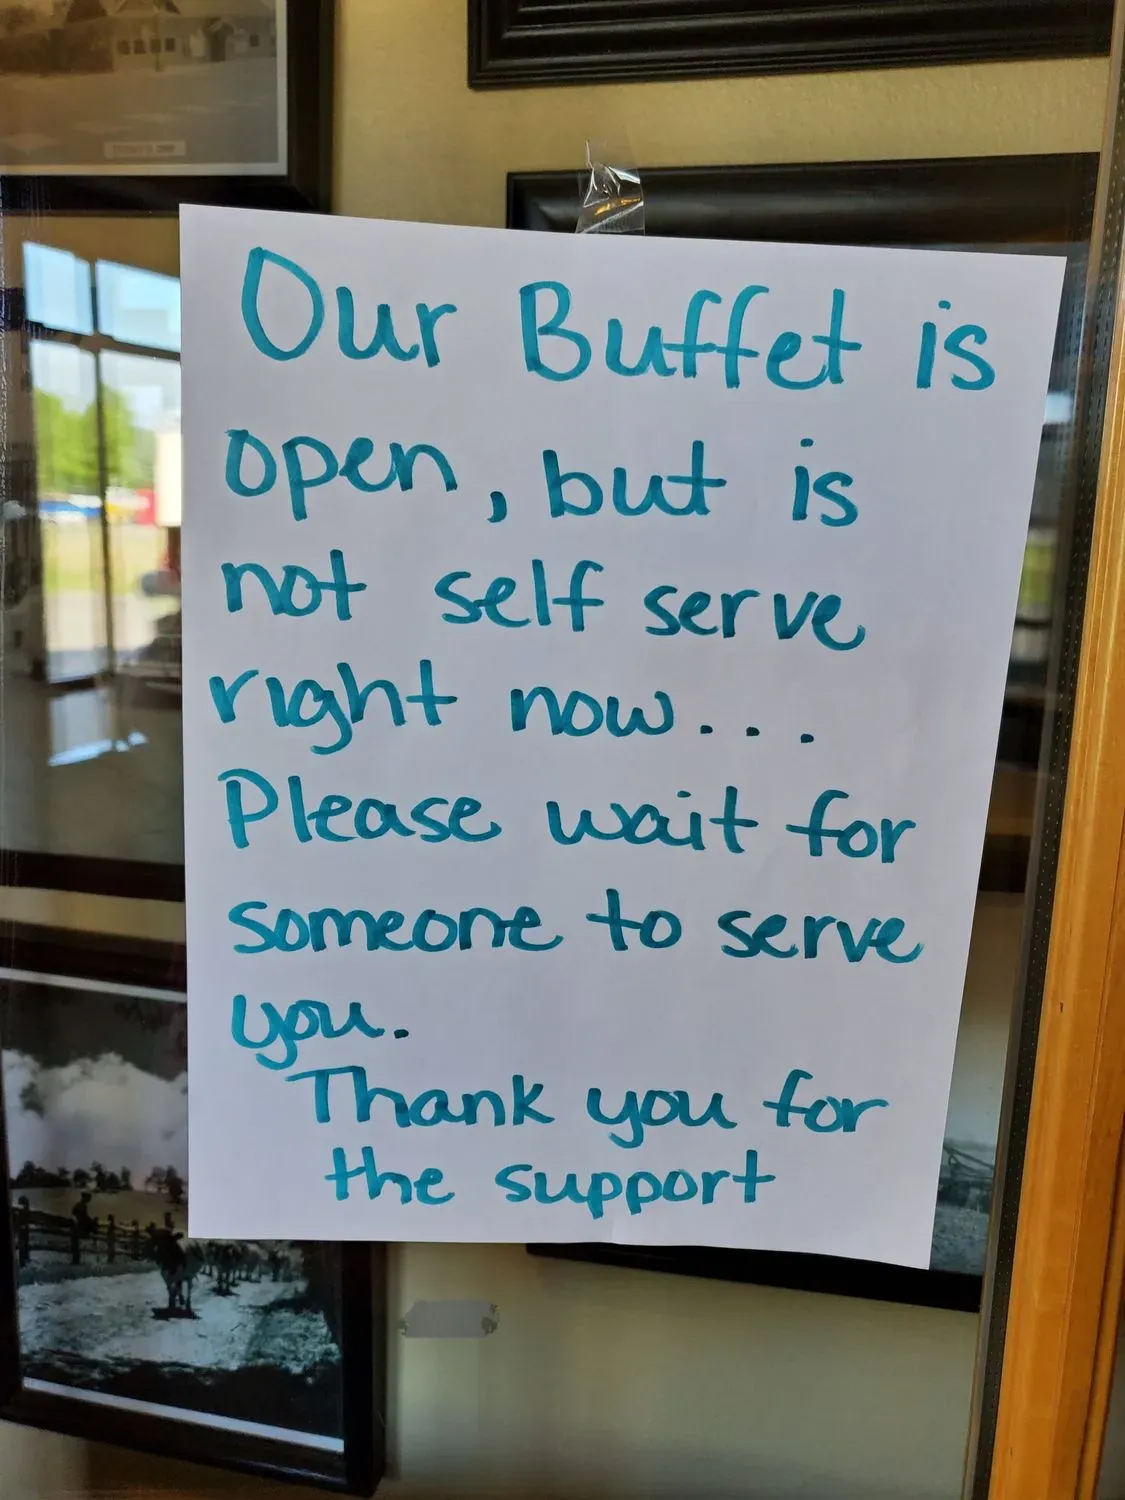 Our Buffet is
open, but is
not self serve
right now...
Please wait for
someone to serve
you.
Thank you for
the support